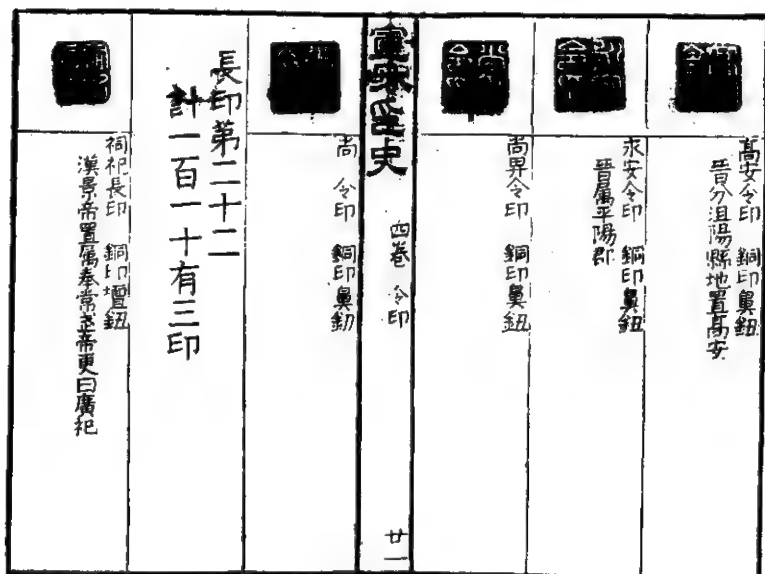 高安令印　銅印鼻鈕
晉分沮陽縣地置髙安
永安令印　銅印鼻鈕
晉屬平陽郡
尚昇令印　銅印鼻鈕
史
四卷　令印
廿一
尚　令印　銅印鼻鈕
長印第二十二
計一百一十有三印
祠祀長印　銅印壇鈕
漢景帝置屬奉常武帝更曰廣祀